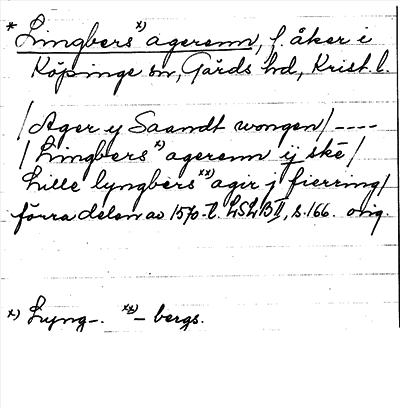 * Lingbers x) agerenn, f. åker i
Köpinge sn, Gärds hd, Krist. l.
/Ager y Saandt wongen/----
/Lingbers x) agerenn ij ske/
Lille lyngbers xx) agir j fierring/
förra delen av 1570-t. LSLB II, s. 166. orig.
x) Lyng-. xx) -bergs.